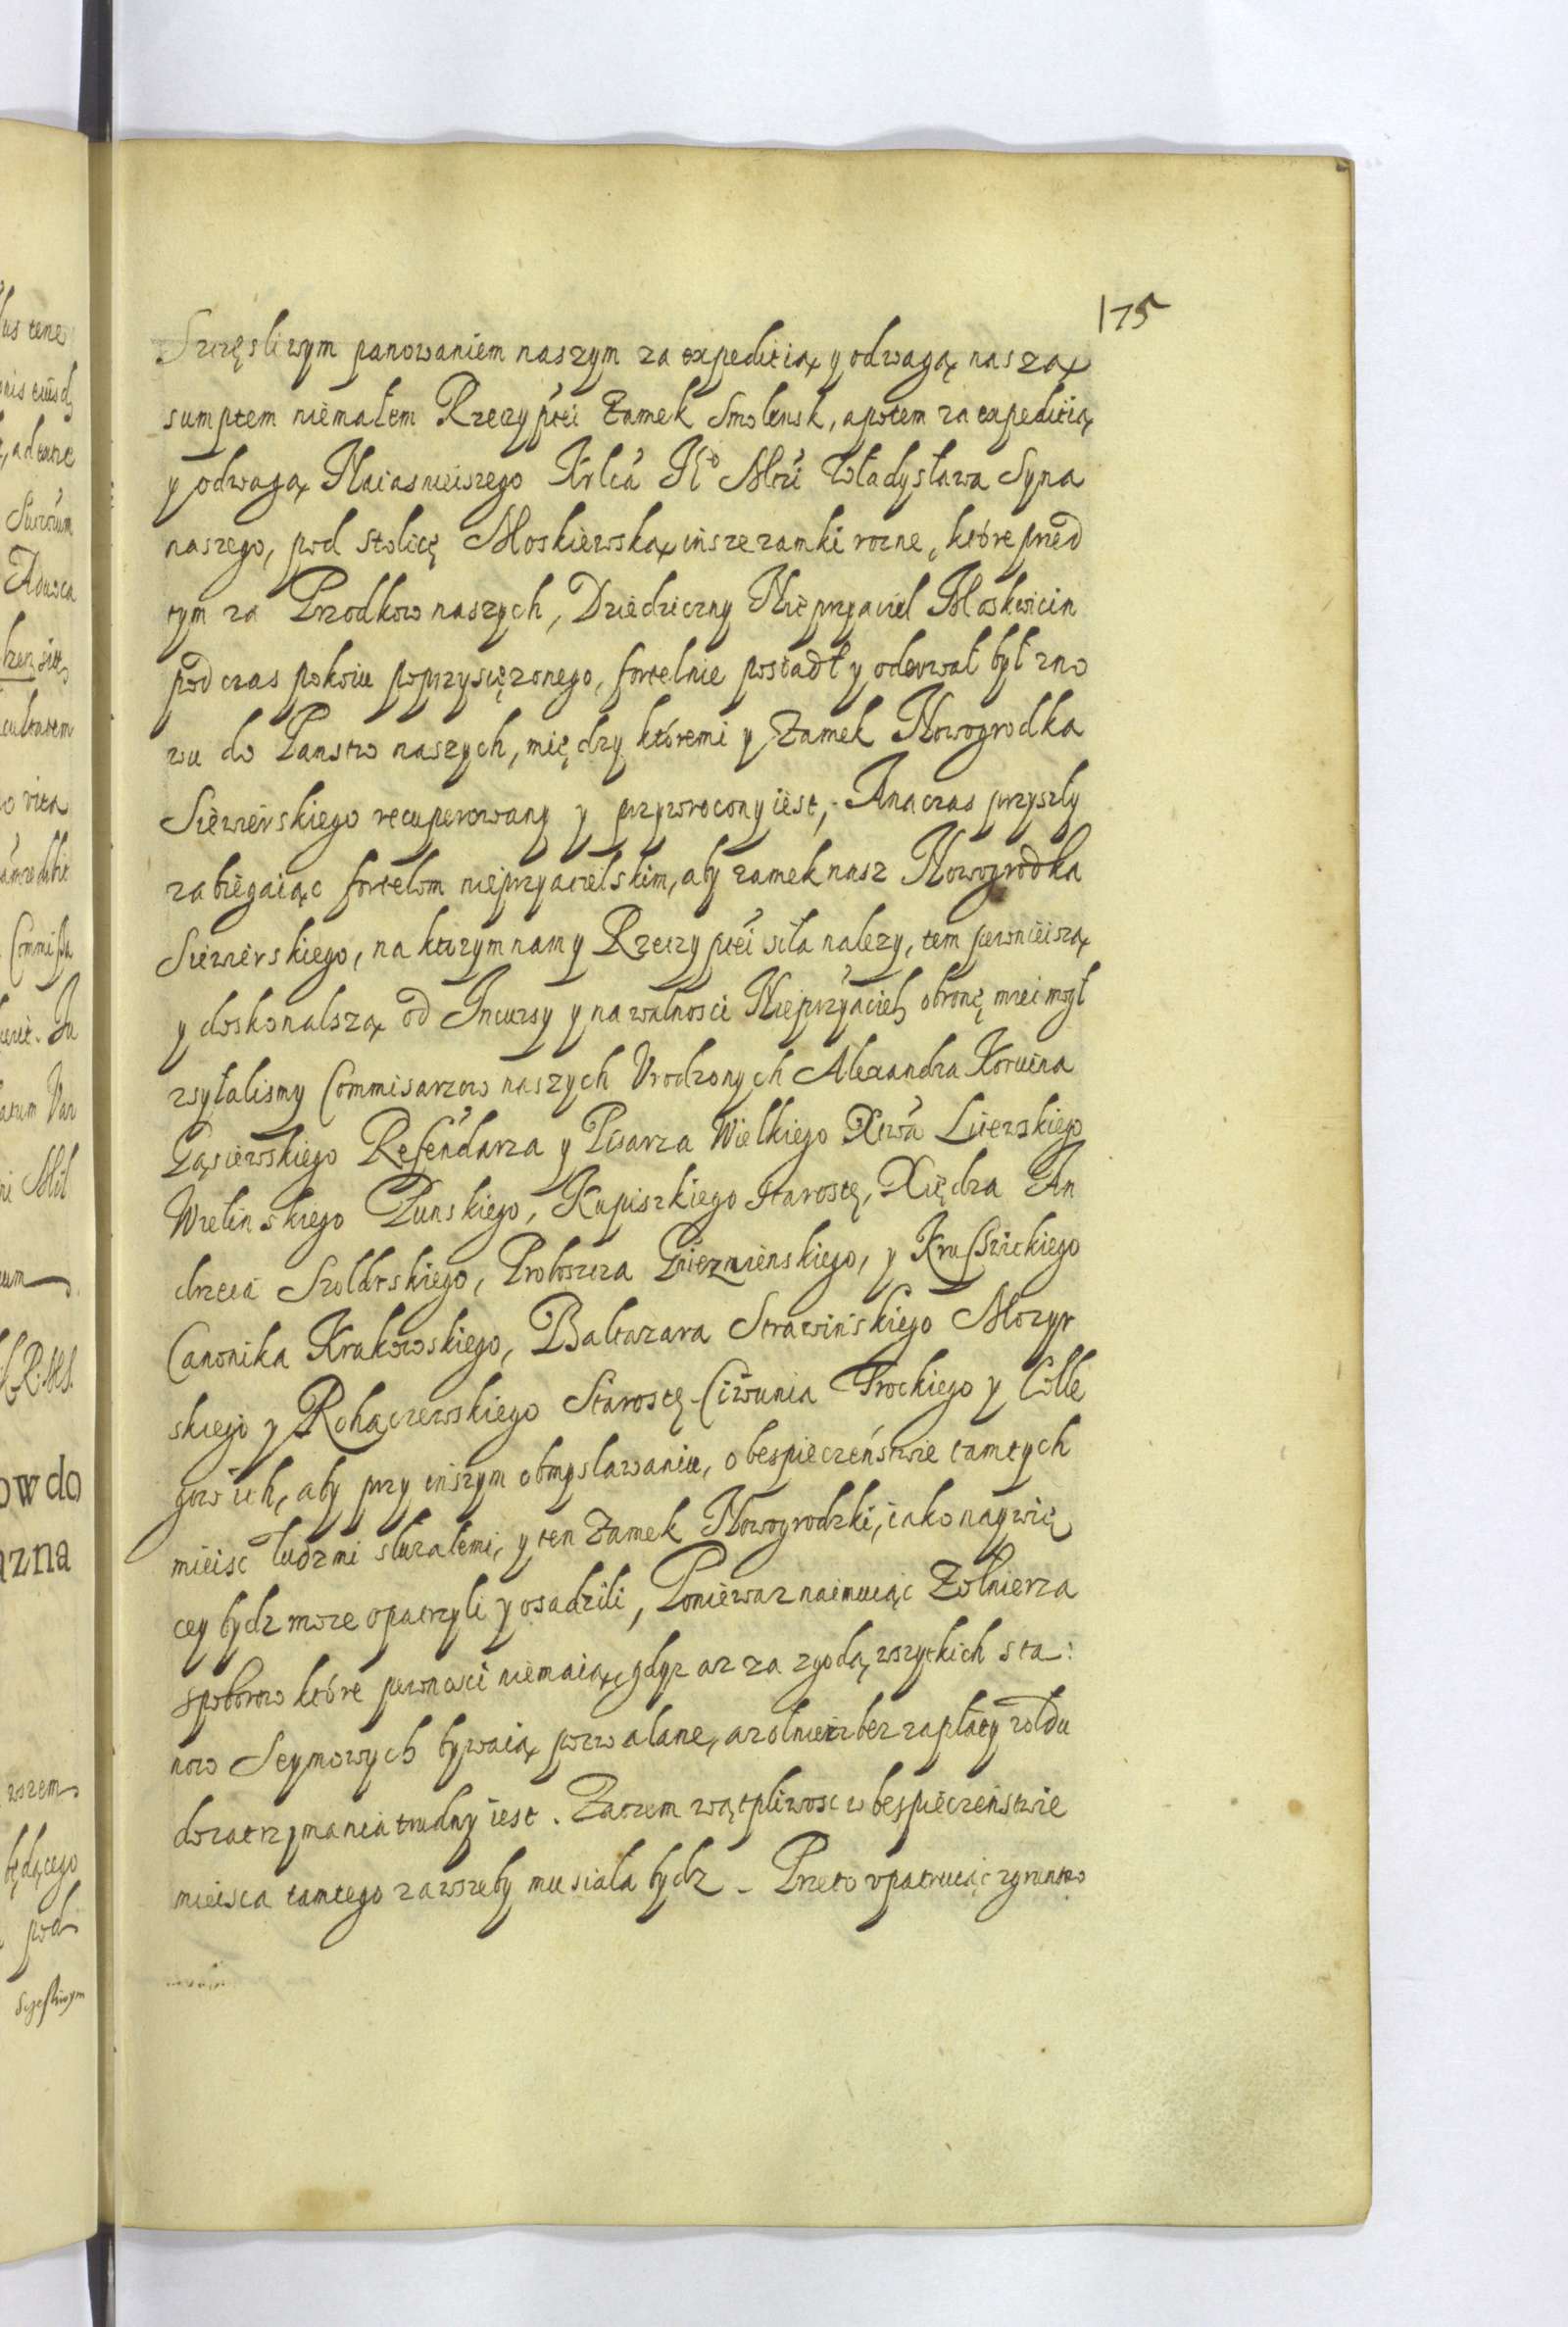 175
Szczęsliwym panowaniem naszym za expeditią y odwagą naszą
sumptem niemałem Rzeczyptei Zamek Smolensk, apotem za expeditią
y odwagą Naiasnieiszego Krlca Kᵒ Mści Władysława Syna
naszego, pod stolicę Moskiewską insze zamki rozne, które przed
tym za Przodkow naszych, Dziedziczny Nieprzyaciel Moskwicin
pod czas pokoiu poprzysięzonego, fortelnie posiadł y oderwał był zno
wu do Panstw naszych, między któremi y Zamek Nowogrodka
Siewierskiego recuperowany y przywrocony iest, Anaczas przyszły
zabiegaiąc fortelom nieprzyacielskim, aby zamek nasz Nowogrodka
Siewierskiego, na ktorym nam y Rzeczyptei siła nalezy, tem pewnieiszą
y doskonalszą od Incursy y nawalnosci Nieprzyaciel. obronę miei mogł
zsyłalismy Commisarzow naszych Vrodzonych Alexandra Korwina
Gąsiewskiego Refendarza y Pisarza Wielkiego Xwa Litewskiego
Wielinskiego Punskiego, Kupiszkiego Starostę, Xiędza An
drzeia Szoldrskiego, Proboszcza Gnieznienskiego, y Kruszwickiego
Canonika Krakowskiego, Baltazara Strawińskiego Mozyr
skiego y Rohaczewskiego Starostę Ciwunia Trockiego y Colle
gow ich, aby przy inszym obmyslawaniu, o bespieczeństwie tamtych
mieisc ludzmi słuzałemi, y ten Zamek Nowogrodzki, iako naywię
cey bydz moze opatrzyli y osadzili, Poniewaz naimuiąc Zołnierza
spoborow które pewnosci niemaią, gdyz az za zgodą wszytkich sta:
now Seymowych bywaią pozwalane, azołnierz bez zapłaty zołdu
dozatrzymania trudny iest. Zaczem wątpliwosc w bespieczeństwie
mieisca tamtego zawzeby musiala bydz - Przeto vpatruiąc zgruntow